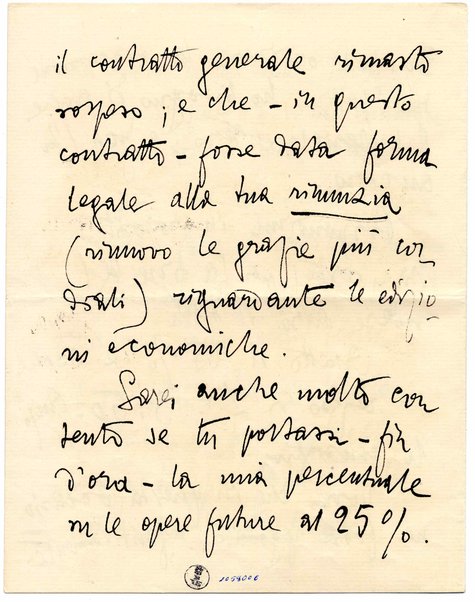 il contratto generale rimasto
sospeso; e che - in questo
contratto - fosse data forma
legale alla tua rinunzia
(rinnovo le grazie più cor
diali) riguardante le edizio
ni economiche.
Sarei anche molto con
tento se tu portassi - fin
d'ora - la mia percentuale
su le opere future al 25%.
1058006